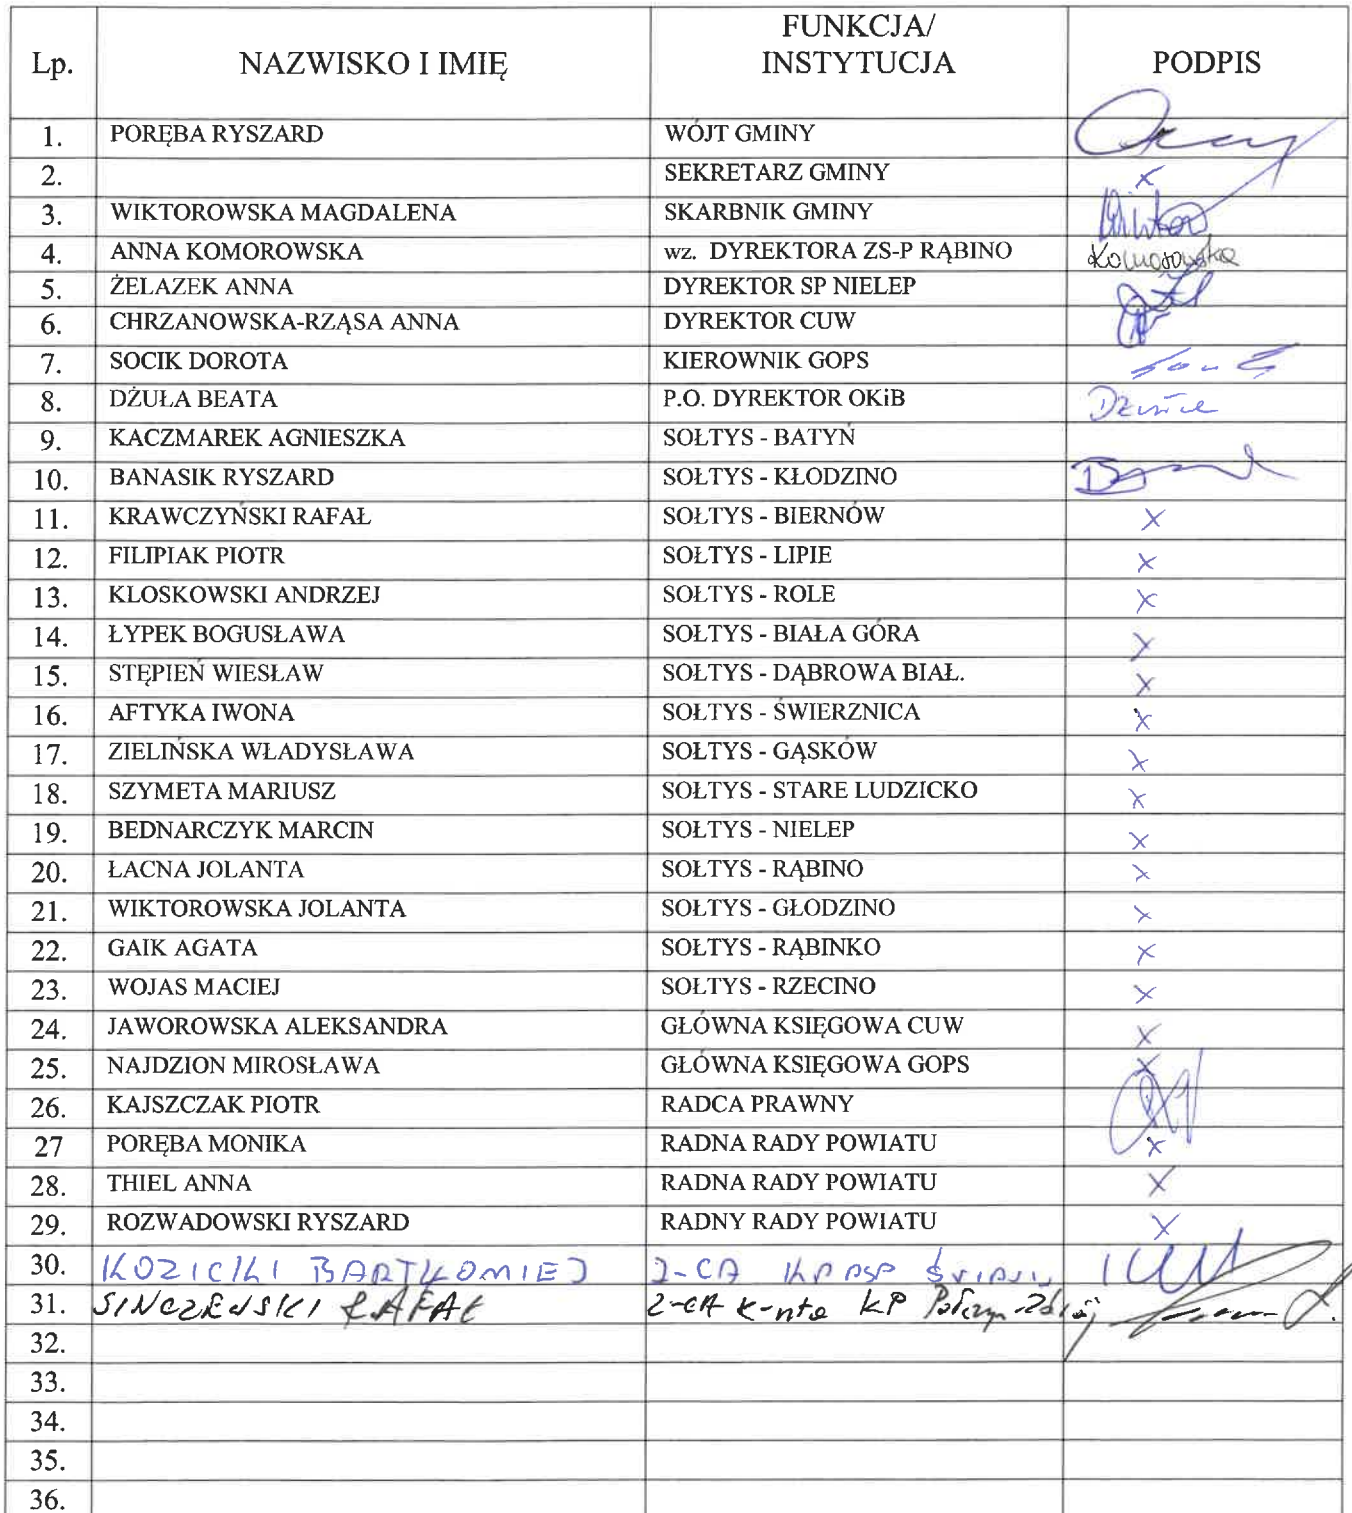 Lp. NAZWISKO I IMIĘ FUNKCJA/ INSTYTUCJA PODPIS
1. PORĘBA RYSZARD WÓJT GMINY
2. SEKRETARZ GMINY x
3. WIKTOROWSKA MAGDALENA SKARBNIK GMINY
4. ANNA KOMOROWSKA wz. DYREKTORA ZS-P RĄBINO Komorowska
5. ŻELAZEK ANNA DYREKTOR SP NIELEP
6. CHRZANOWSKA-RZĄSA ANNA DYREKTOR CUW
7. SOCIK DOROTA KIEROWNIK GOPS
8. DŻUŁA BEATA P.O. DYREKTOR OKiB
9. KACZMAREK AGNIESZKA SOŁTYS - BATYŃ
10. BANASIK RYSZARD SOŁTYS - KŁODZINO
11. KRAWCZYŃSKI RAFAŁ SOŁTYS - BIERNÓW x
12. FILIPIAK PIOTR SOŁTYS - LIPIE x
13. KLOSKOWSKI ANDRZEJ SOŁTYS - ROLE x
14. ŁYPEK BOGUSŁAWA SOŁTYS - BIAŁA GÓRA x
15. STĘPIEŃ WIESŁAW SOŁTYS - DĄBROWA BIAŁ. x
16. AFTYKA IWONA SOŁTYS - ŚWIERZNICA x
17. ZIELIŃSKA WŁADYSŁAWA SOŁTYS - GĄSKÓW x
18. SZYMETA MARIUSZ SOŁTYS - STARE LUDZICKO x
19. BEDNARCZYK MARCIN SOŁTYS - NIELEP x
20. ŁACNA JOLANTA SOŁTYS - RĄBINO x
21. WIKTOROWSKA JOLANTA SOŁTYS - GŁODZINO x
22. GAIK AGATA SOŁTYS - RĄBINKO x
23. WOJAS MACIEJ SOŁTYS - RZECINO x
24. JAWOROWSKA ALEKSANDRA GŁÓWNA KSIĘGOWA CUW x
25. NAJDZION MIROSŁAWA GŁÓWNA KSIĘGOWA GOPS x
26. KAJSZCZAK PIOTR RADCA PRAWNY
27 PORĘBA MONIKA RADNA RADY POWIATU x
28. THIEL ANNA RADNA RADY POWIATU x
29. ROZWADOWSKI RYSZARD RADNY RADY POWIATU x
30. KOZICKI BARTŁOMIEJ Z-CA
31. SINCZEWSKI RAFAŁ Z-CA K-nta KP Połczyn-Zdrój
32.
33.
34.
35.
36.